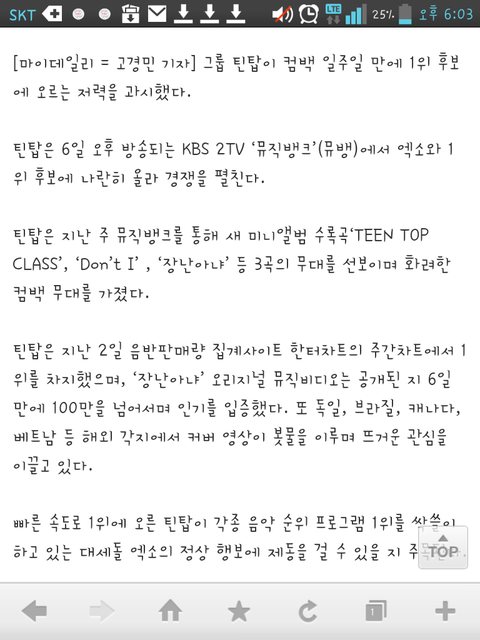 SKT LTE 25% 오후 6:03
[마이데일리 = 고경민 기자] 그룹 틴탑이 컴백 일주일 만에 1위 후보
에 오르는 저력을 과시했다.
틴탑은 6일 오후 방송되는 KBS 2TV ‘뮤직뱅크’(뮤뱅)에서 엑소와 1
위 후보에 나란히 올라 경쟁을 펼친다.
틴탑은 지난 주 뮤직뱅크를 통해 새 미니앨범 수록곡‘TEEN TOP
CLASS’, ‘Don’t I’ , ‘장난아냐’ 등 3곡의 무대를 선보이며 화려한
컴백 무대를 가졌다.
틴탑은 지난 2일 음반판매량 집계사이트 한터차트의 주간차트에서 1
위를 차지했으며, ‘장난아냐’ 오리지널 뮤직비디오는 공개된 지 6일
만에 100만을 넘어서며 인기를 입증했다. 또 독일, 브라질, 캐나다,
베트남 등 해외 각지에서 커버 영상이 봇물을 이루며 뜨거운 관심을
이끌고 있다.
빠른 속도로 1위에 오른 틴탑이 각종 음악 순위 프로그램 1위를
하고 있는 대세돌 엑소의 정상 행보에 제동을 걸 수 있을 지
TOP
1